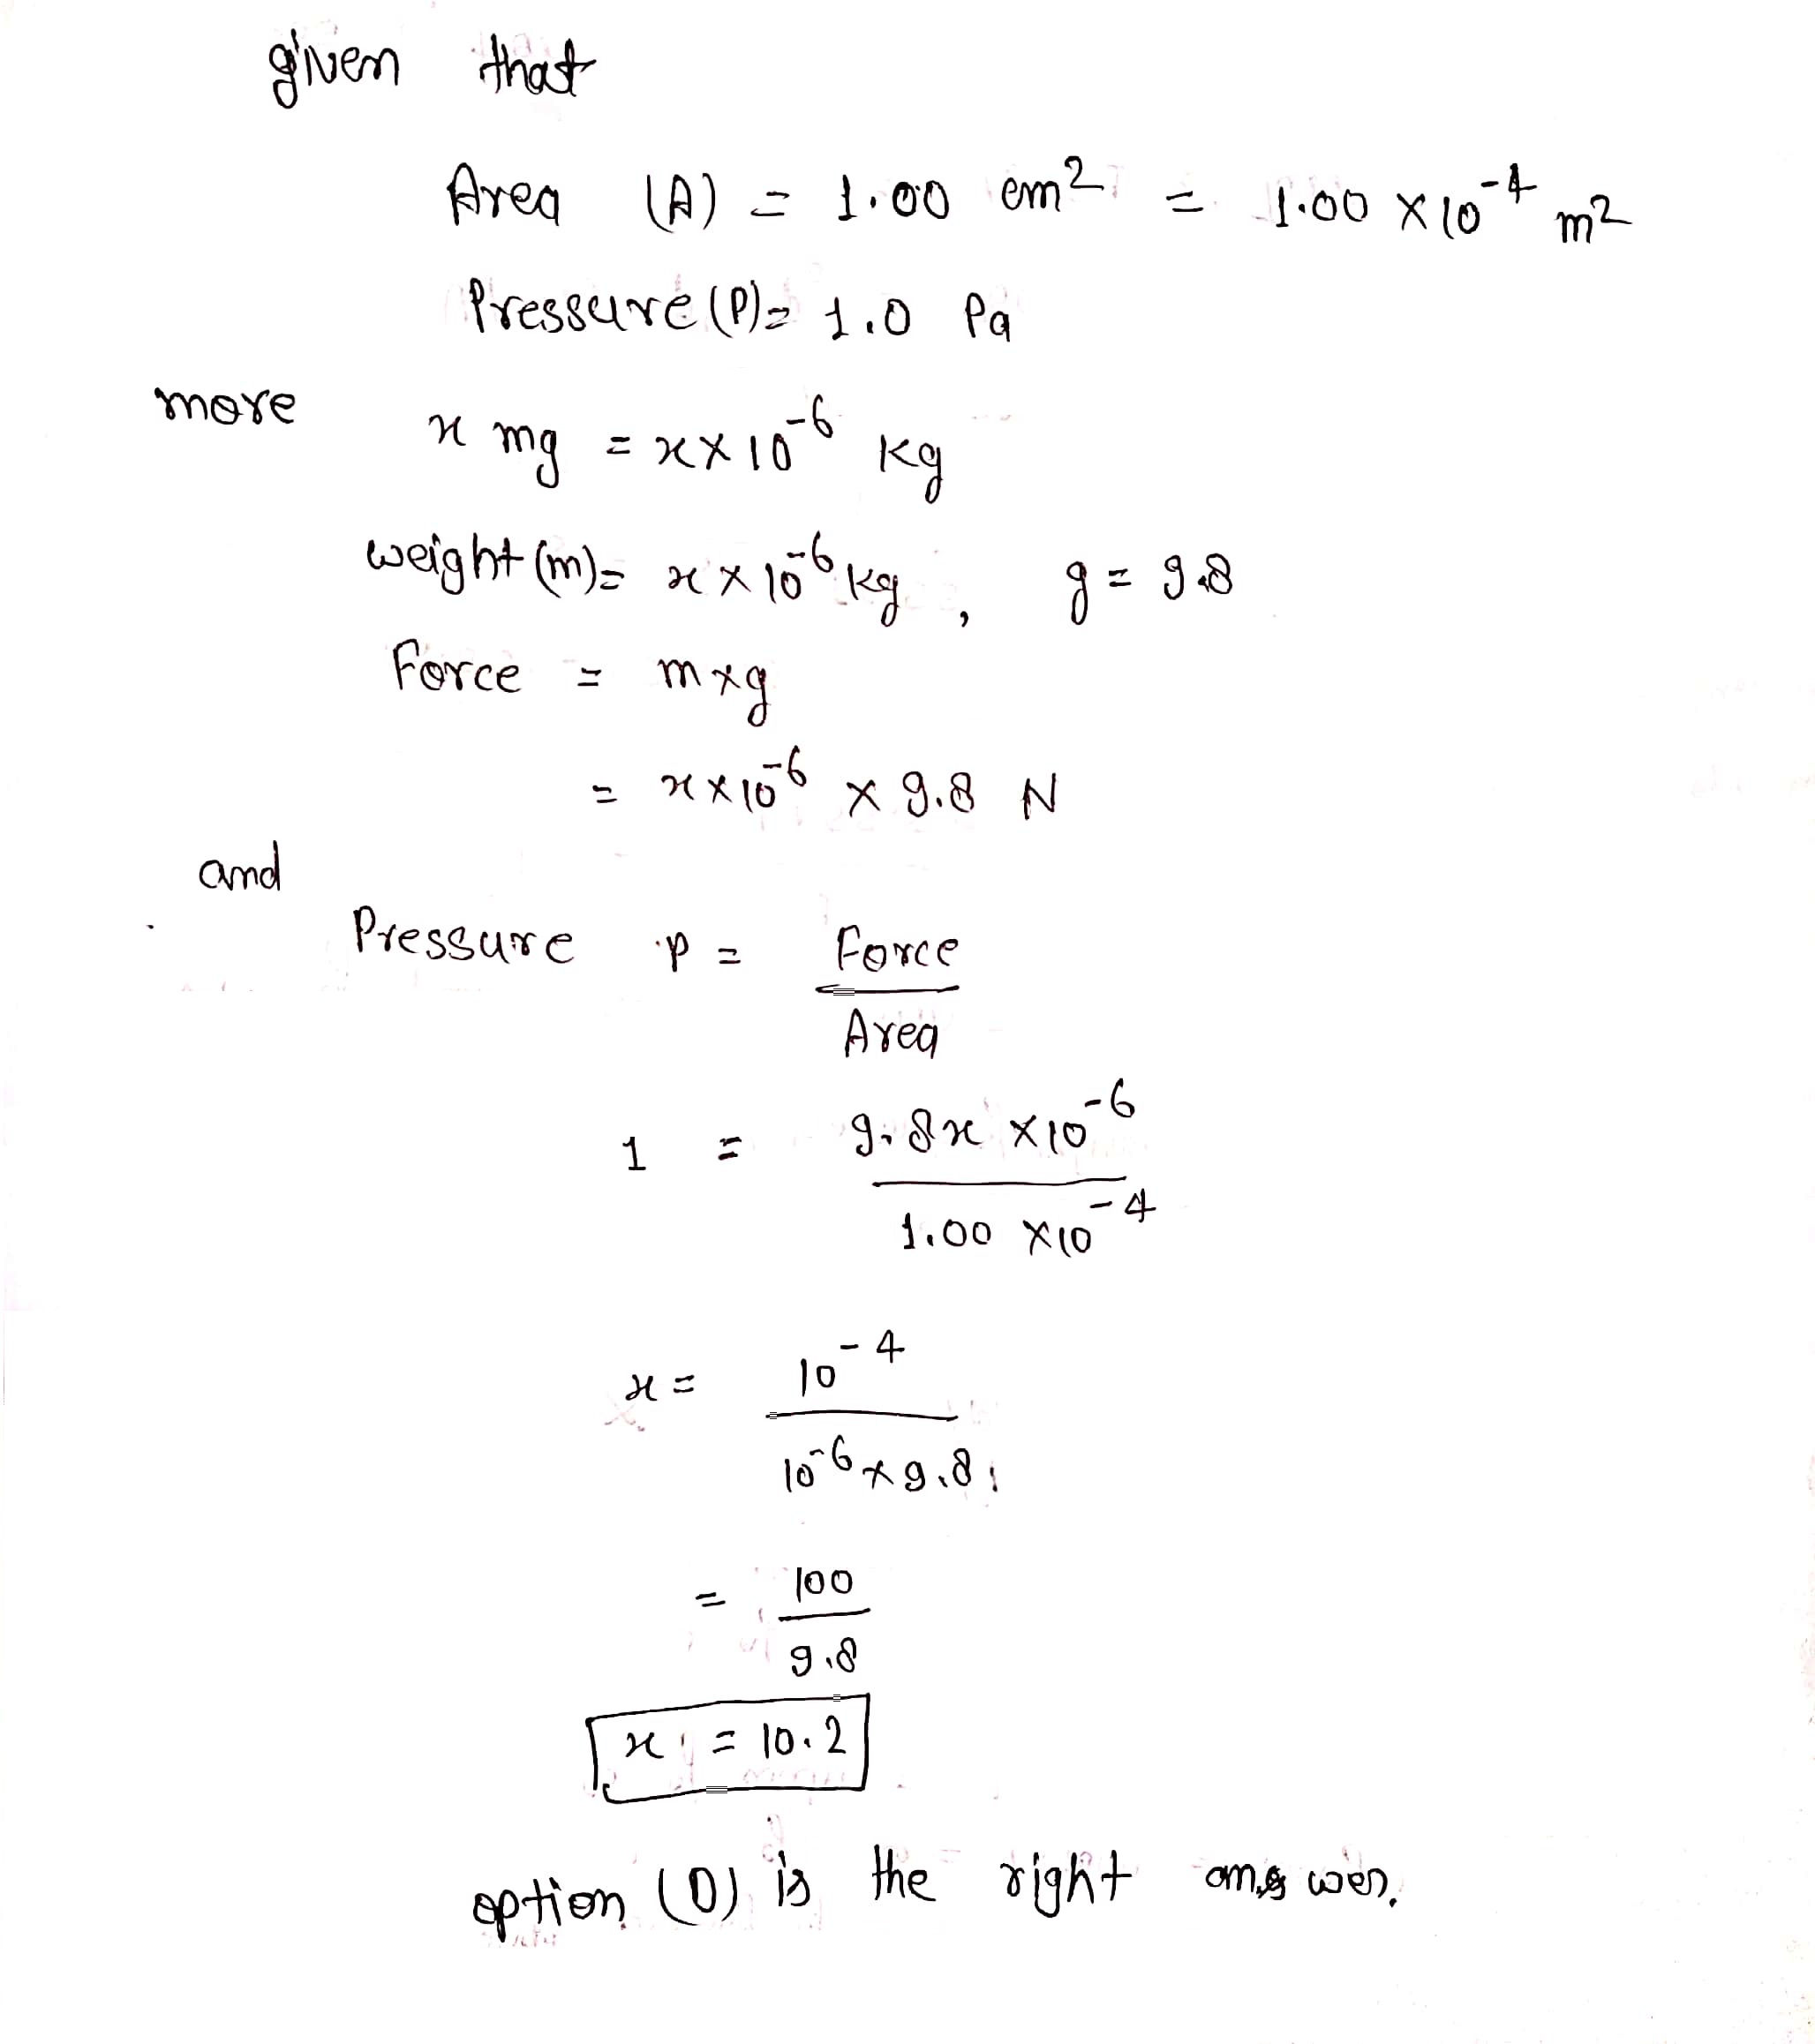 given that
Area (A) = 1.00 cm² = 1.00 × 10⁻⁴ m²
Pressure (P) = 1.0 Pa
more x mg = x × 10⁻⁶ kg
weight (m) = x × 10⁻⁶ kg , g = 9.8
Force = m × g
= x × 10⁻⁶ × 9.8 N
and
Pressure p = Force
Area
1 = 9.8x × 10⁻⁶
1.00 × 10⁻⁴
x = 10⁻⁴
10⁻⁶ × 9.8
= 100
9.8
x = 10.2
option (D) is the right answer.